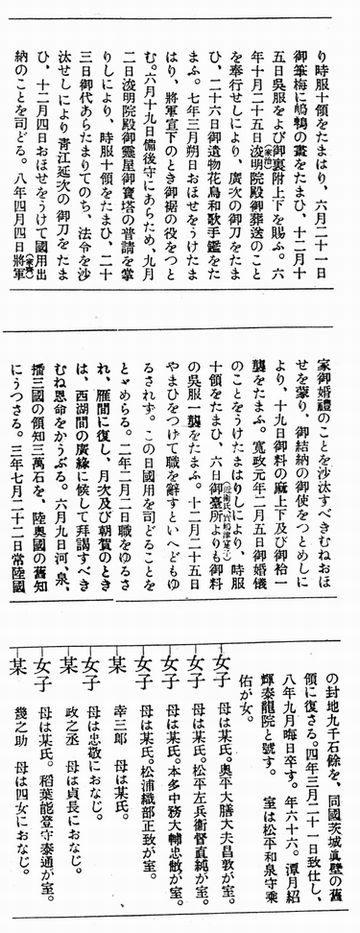 り時服十領をたまはり、六月二十一日
御筆梅に鳲鳩の畫をたまひ、十二月十
五日吳服をよび御裏附上下を賜ふ。六
年十月二十五日浚明院殿(家治)御葬送のこと
を奉行せしにより、廣次の御刀をたま
ひ、二十六日御遺物花鳥和歌手鑑をた
まふ。七年三月朔日おほせをうけたま
はり、將軍宣下のとき御裾の役をつと
む。六月十九日備後守にあらため、九月
二日浚明院殿御靈屋御寶塔の普請を掌
りしにより、時服十領をたまひ、二十
三日御代あらたまりてのち、法令を沙
汰せしにより靑江延次の御刀をたま
ひ、十二月四日おほせをうけて國用出
納のことを司どる。八年四月四日將軍(家齊)
家御婚禮のことを沙汰すべきむねおほ
せを蒙り、御結納の御使をつとめしに
より、十九日御料の麻上下及び御袷一
襲をたまふ。寬政元年二月五日御婚儀
のことをうけたまはりしにより、時服
十領をたまひ、六日御臺所よりも御料
の吳服一襲をたまふ。十二月二十五日
やまひをつげて職を辭すといへどもゆ
るされず。この日國用を司どることを
とゞめらる。二年二月二日職をゆるさ
れ、雁間に復し、月次及び朝賀のとき
は、西湖間の廣緣に候して拜謁すべき
むね恩命をかうぶる。六月九日河、泉、
播三國の領知三萬石を、陸奧國の舊知
にうつさる。三年七月二十二日常陸國
の封地九千石餘を、同國茨城眞壁の舊
領に復さる。四年三月二十一日致仕し、
八年九月晦日卒す。年六十六。潭月紹
輝泰龍院と號す。 室は松平和泉守乘
佑が女。
女子 母は某氏。奧平大膳大夫昌敦が室。
女子 母は某氏。松平左兵衞督直純が室。
女子 母は某氏。本多中務大輔忠敞が室。
女子 母は某氏。松浦織部正致が室。
某 幸三郎 母は某氏。
女子 母は忠敬におなじ。
某 政之丞 母は貞長におなじ。
女子 母は某氏。稻葉能登守泰通が室。
某 幾之助 母は四女におなじ。